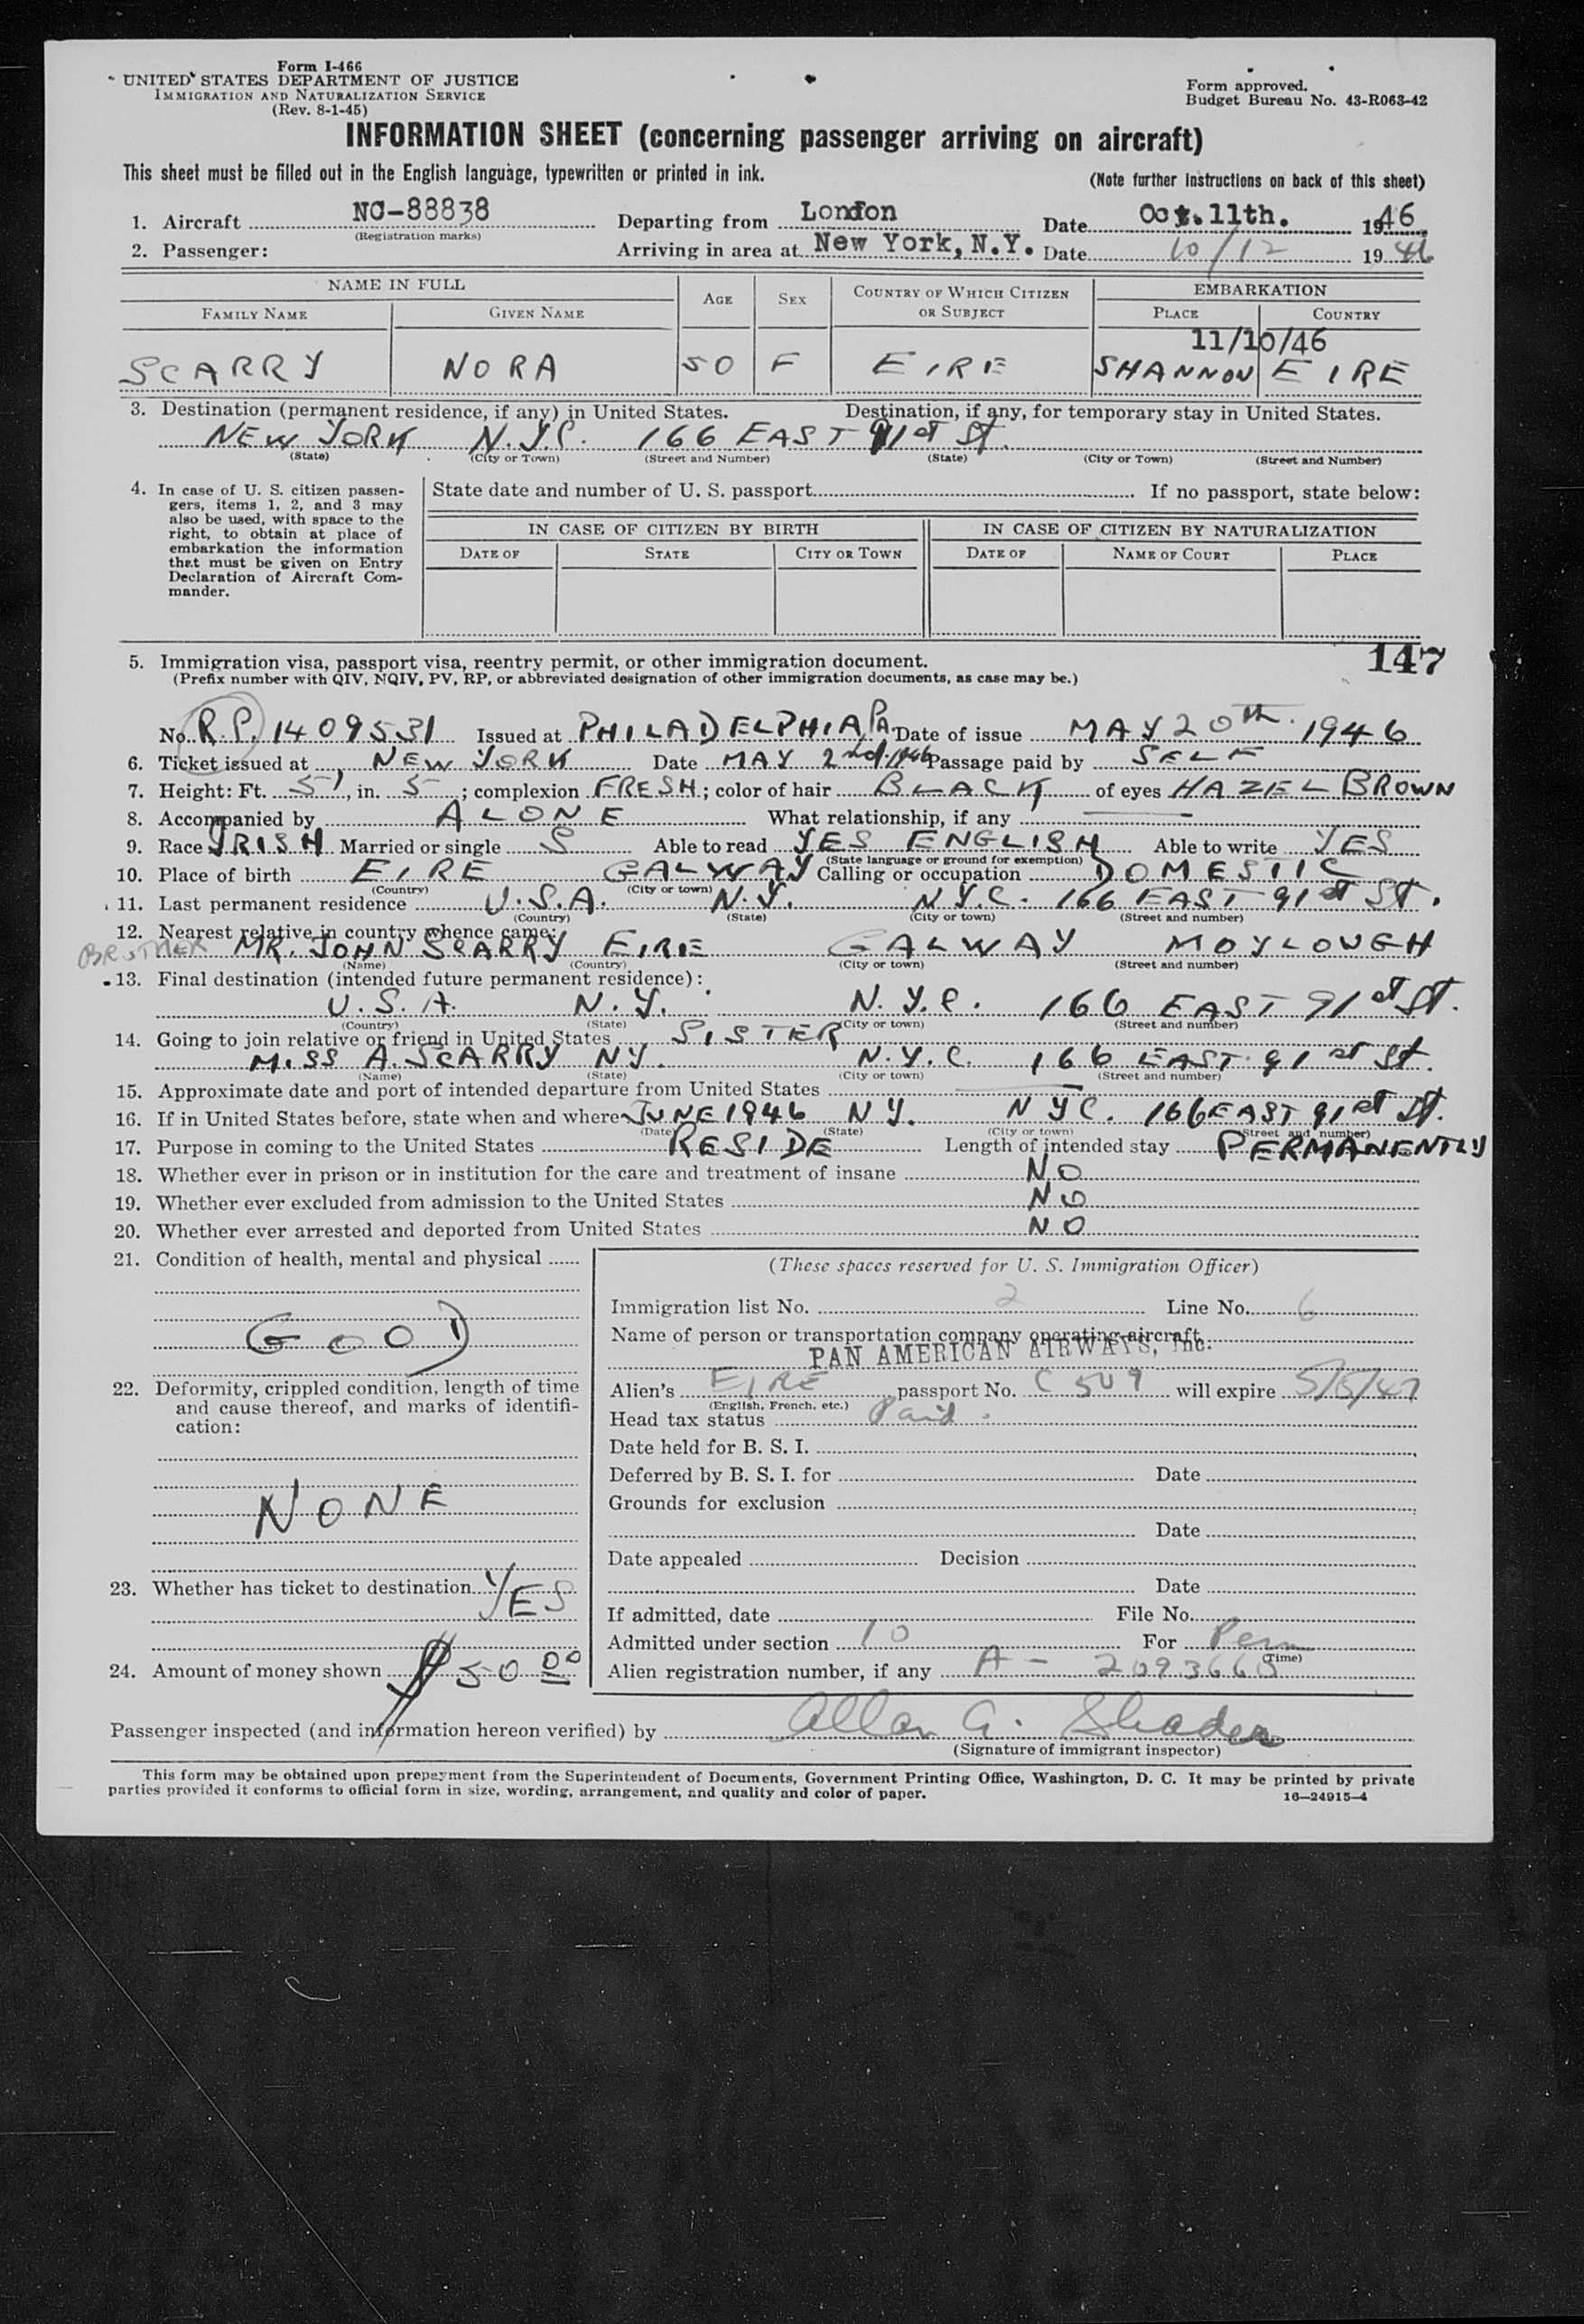 Form I-466
UNITED STATES DEPARTMENT OF JUSTICE
IMMIGRATION AND NATURALIZATION SERVICE
(Rev. 8-1-45)
Form approved.
Budget Bureau No. 43-R063-42
INFORMATION SHEET (concerning passenger arriving on aircraft)
This sheet must be filled out in the English language, typewritten or printed in ink.
(Note further instructions on back of this sheet)
1. Aircraft NC-88838 Departing from London Date Oct. 11th. 1946
(Registration marks)
2. Passenger: Arriving in area at New York, N.Y. Date 10/12 1946
NAME IN FULL AGE SEX COUNTRY OF WHICH CITIZEN OR SUBJECT EMBARKATION
FAMILY NAME GIVEN NAME PLACE COUNTRY
11/10/46
SCARRY NORA 50 F EIRE SHANNON EIRE
3. Destination (permanent residence, if any) in United States. Destination, if any, for temporary stay in United States.
NEW YORK N.Y.C. 166 EAST 91st St.
(State) (City or Town) (Street and Number) (State) (City or Town) (Street and Number)
4. In case of U. S. citizen passen-
gers, items 1, 2, and 3 may
also be used, with space to the
right, to obtain at place of
embarkation the information
that must be given on Entry
Declaration of Aircraft Com-
mander.
State date and number of U. S. passport If no passport, state below:
IN CASE OF CITIZEN BY BIRTH IN CASE OF CITIZEN BY NATURALIZATION
DATE OF STATE CITY OR TOWN DATE OF NAME OF COURT PLACE
147
5. Immigration visa, passport visa, reentry permit, or other immigration document.
(Prefix number with QIV, NQIV, PV, RP, or abbreviated designation of other immigration documents, as case may be.)
No. R.P. 1409531 Issued at PHILADELPHIA PA. Date of issue MAY 20th. 1946
6. Ticket issued at NEW YORK Date MAY 2nd. 1946 Passage paid by SELF
7. Height: Ft. 5', in. 5 ; complexion FRESH ; color of hair BLACK of eyes HAZEL BROWN
8. Accompanied by ALONE What relationship, if any
9. Race IRISH Married or single S Able to read YES ENGLISH Able to write YES
(State language or ground for exemption)
10. Place of birth EIRE GALWAY Calling or occupation DOMESTIC
(Country) (City or town)
11. Last permanent residence U.S.A. N.Y. N.Y.C. 166 EAST 91st St.
(Country) (State) (City or town) (Street and number)
12. Nearest relative in country whence came:
BROTHER MR. JOHN SCARRY EIRE GALWAY MOYLOUGH
(Name) (Country) (City or town) (Street and number)
13. Final destination (intended future permanent residence):
U.S.A. N.Y. N.Y.C. 166 EAST 91st St.
(Country) (State) (City or town) (Street and number)
14. Going to join relative or friend in United States SISTER
MISS A. SCARRY NY. N.Y.C. 166 EAST 91st St.
(Name) (State) (City or town) (Street and number)
15. Approximate date and port of intended departure from United States
16. If in United States before, state when and where JUNE 1946 NY. NYC. 166 EAST 91st St.
(Date) (State) (City or town) (Street and number)
17. Purpose in coming to the United States RESIDE Length of intended stay PERMANENTLY
18. Whether ever in prison or in institution for the care and treatment of insane NO
19. Whether ever excluded from admission to the United States NO
20. Whether ever arrested and deported from United States NO
21. Condition of health, mental and physical
GOOD
22. Deformity, crippled condition, length of time
and cause thereof, and marks of identifi-
cation:
NONE
23. Whether has ticket to destination YES
24. Amount of money shown $50 00
(These spaces reserved for U. S. Immigration Officer)
Immigration list No. 2 Line No. 6
Name of person or transportation company operating aircraft
PAN AMERICAN AIRWAYS, Inc.
Alien's EIRE passport No. C 509 will expire 5/5/47
(English, French, etc.)
Head tax status Paid.
Date held for B. S. I.
Deferred by B. S. I. for Date
Grounds for exclusion
Date
Date appealed Decision
Date
If admitted, date File No.
Admitted under section 10 For Perm
(Time)
Alien registration number, if any A - 2093665
Passenger inspected (and information hereon verified) by Allan G. Shader
(Signature of immigrant inspector)
This form may be obtained upon prepayment from the Superintendent of Documents, Government Printing Office, Washington, D. C. It may be printed by private
parties provided it conforms to official form in size, wording, arrangement, and quality and color of paper.
16—24915-4